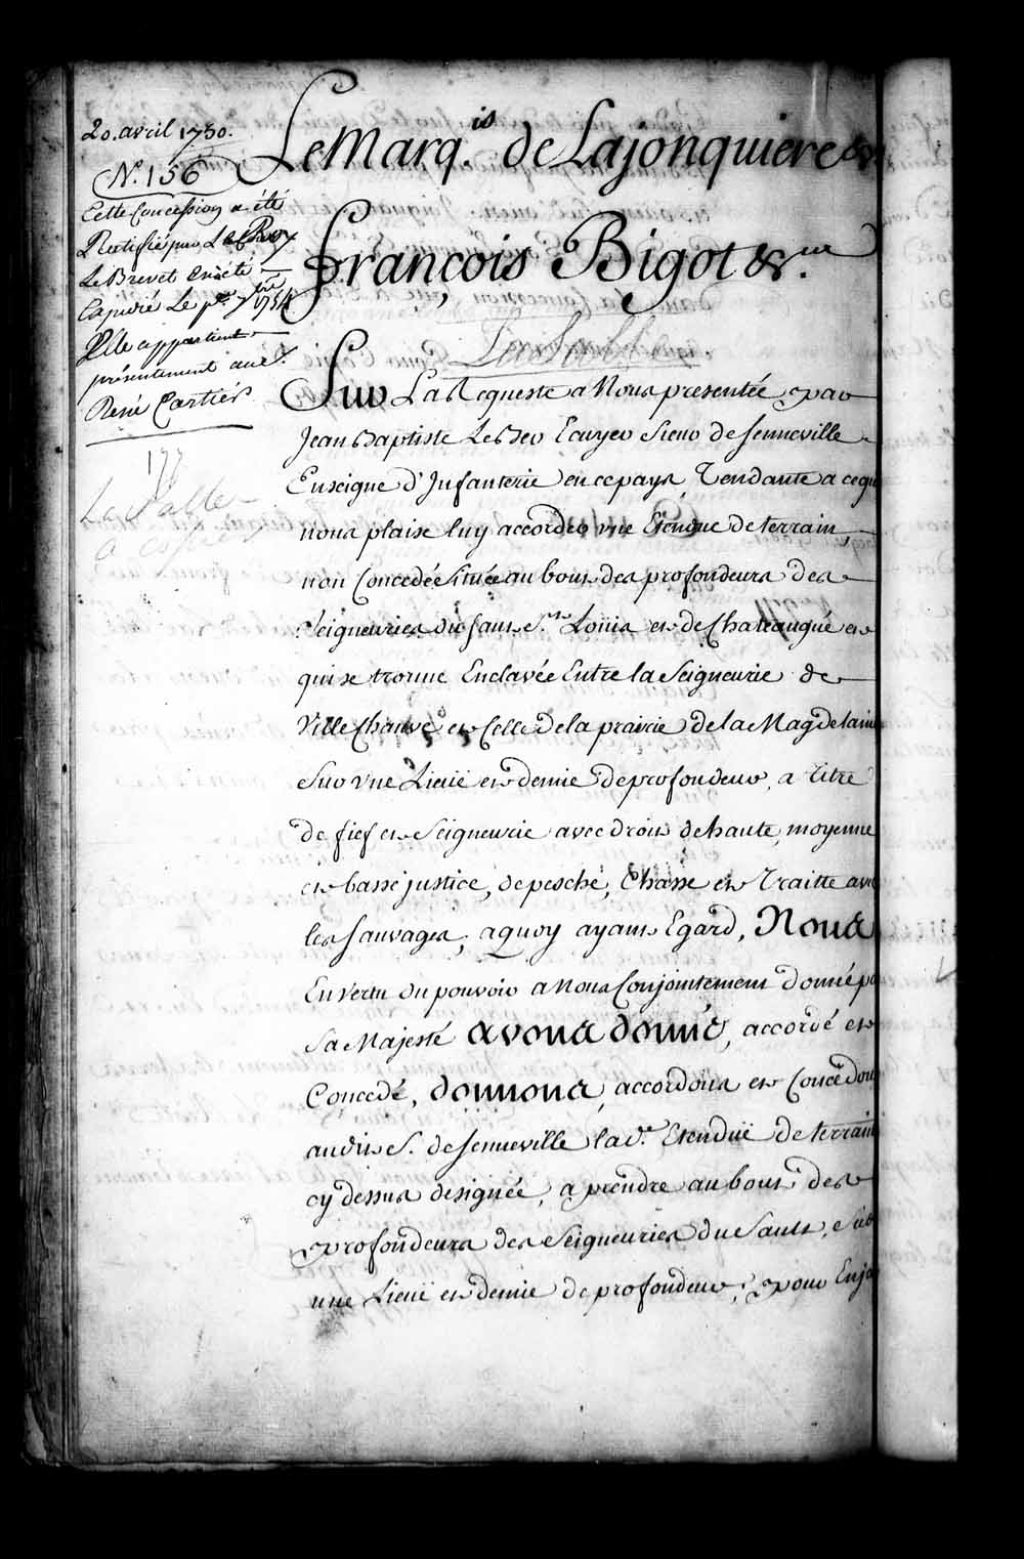 20. avril 1750.
N.° 156
Cette Concession a été
Ratifiée par Le Roy
Le Brevet en été
Le p.er 7bre 1754
Elle appartient
présentement au S.r
René Cartier
177
La Salle
Le Marq.is de Lajonquiere &.
françois Bigot &.ca
La Salle
Sur La Requeste a Nous presentée par
Jean Baptiste Le Ber Ecuyer Sieur de senneville
Enseigne d'Infanterie en ce pays Tendante a ce qu
nous plaise luy accorder une Etendue de terrain,
non Concedée Située au bout des profondeurs des
Seigneuries du sault S.t Loüis et de Chateaugué et
qui se trouve Enclavée Entre la Seigneurie de
Ville Chauve et Celle de la prairie de la Magdelaine
Sur une Lieüe et demie de profondeur, a titre
de fief et Seigneurie avec droit de haute, moyenne
et basse justice, de pesche, Chasse et Traitte avec
les sauvages, a quoy ayant Egard, Nous
En vertu du pouvoir a Nous Conjointement donné p
Sa Majesté avons donné, accordé et
Concedé, donnons, accordons et Concedons
audit S. de senneville la d.e Etenduë de terrain
cy dessus designée, a prendre au bout des
profondeurs des Seigneuries du Sault, Sur
une Lieüe et demie de profondeur, pour En jo